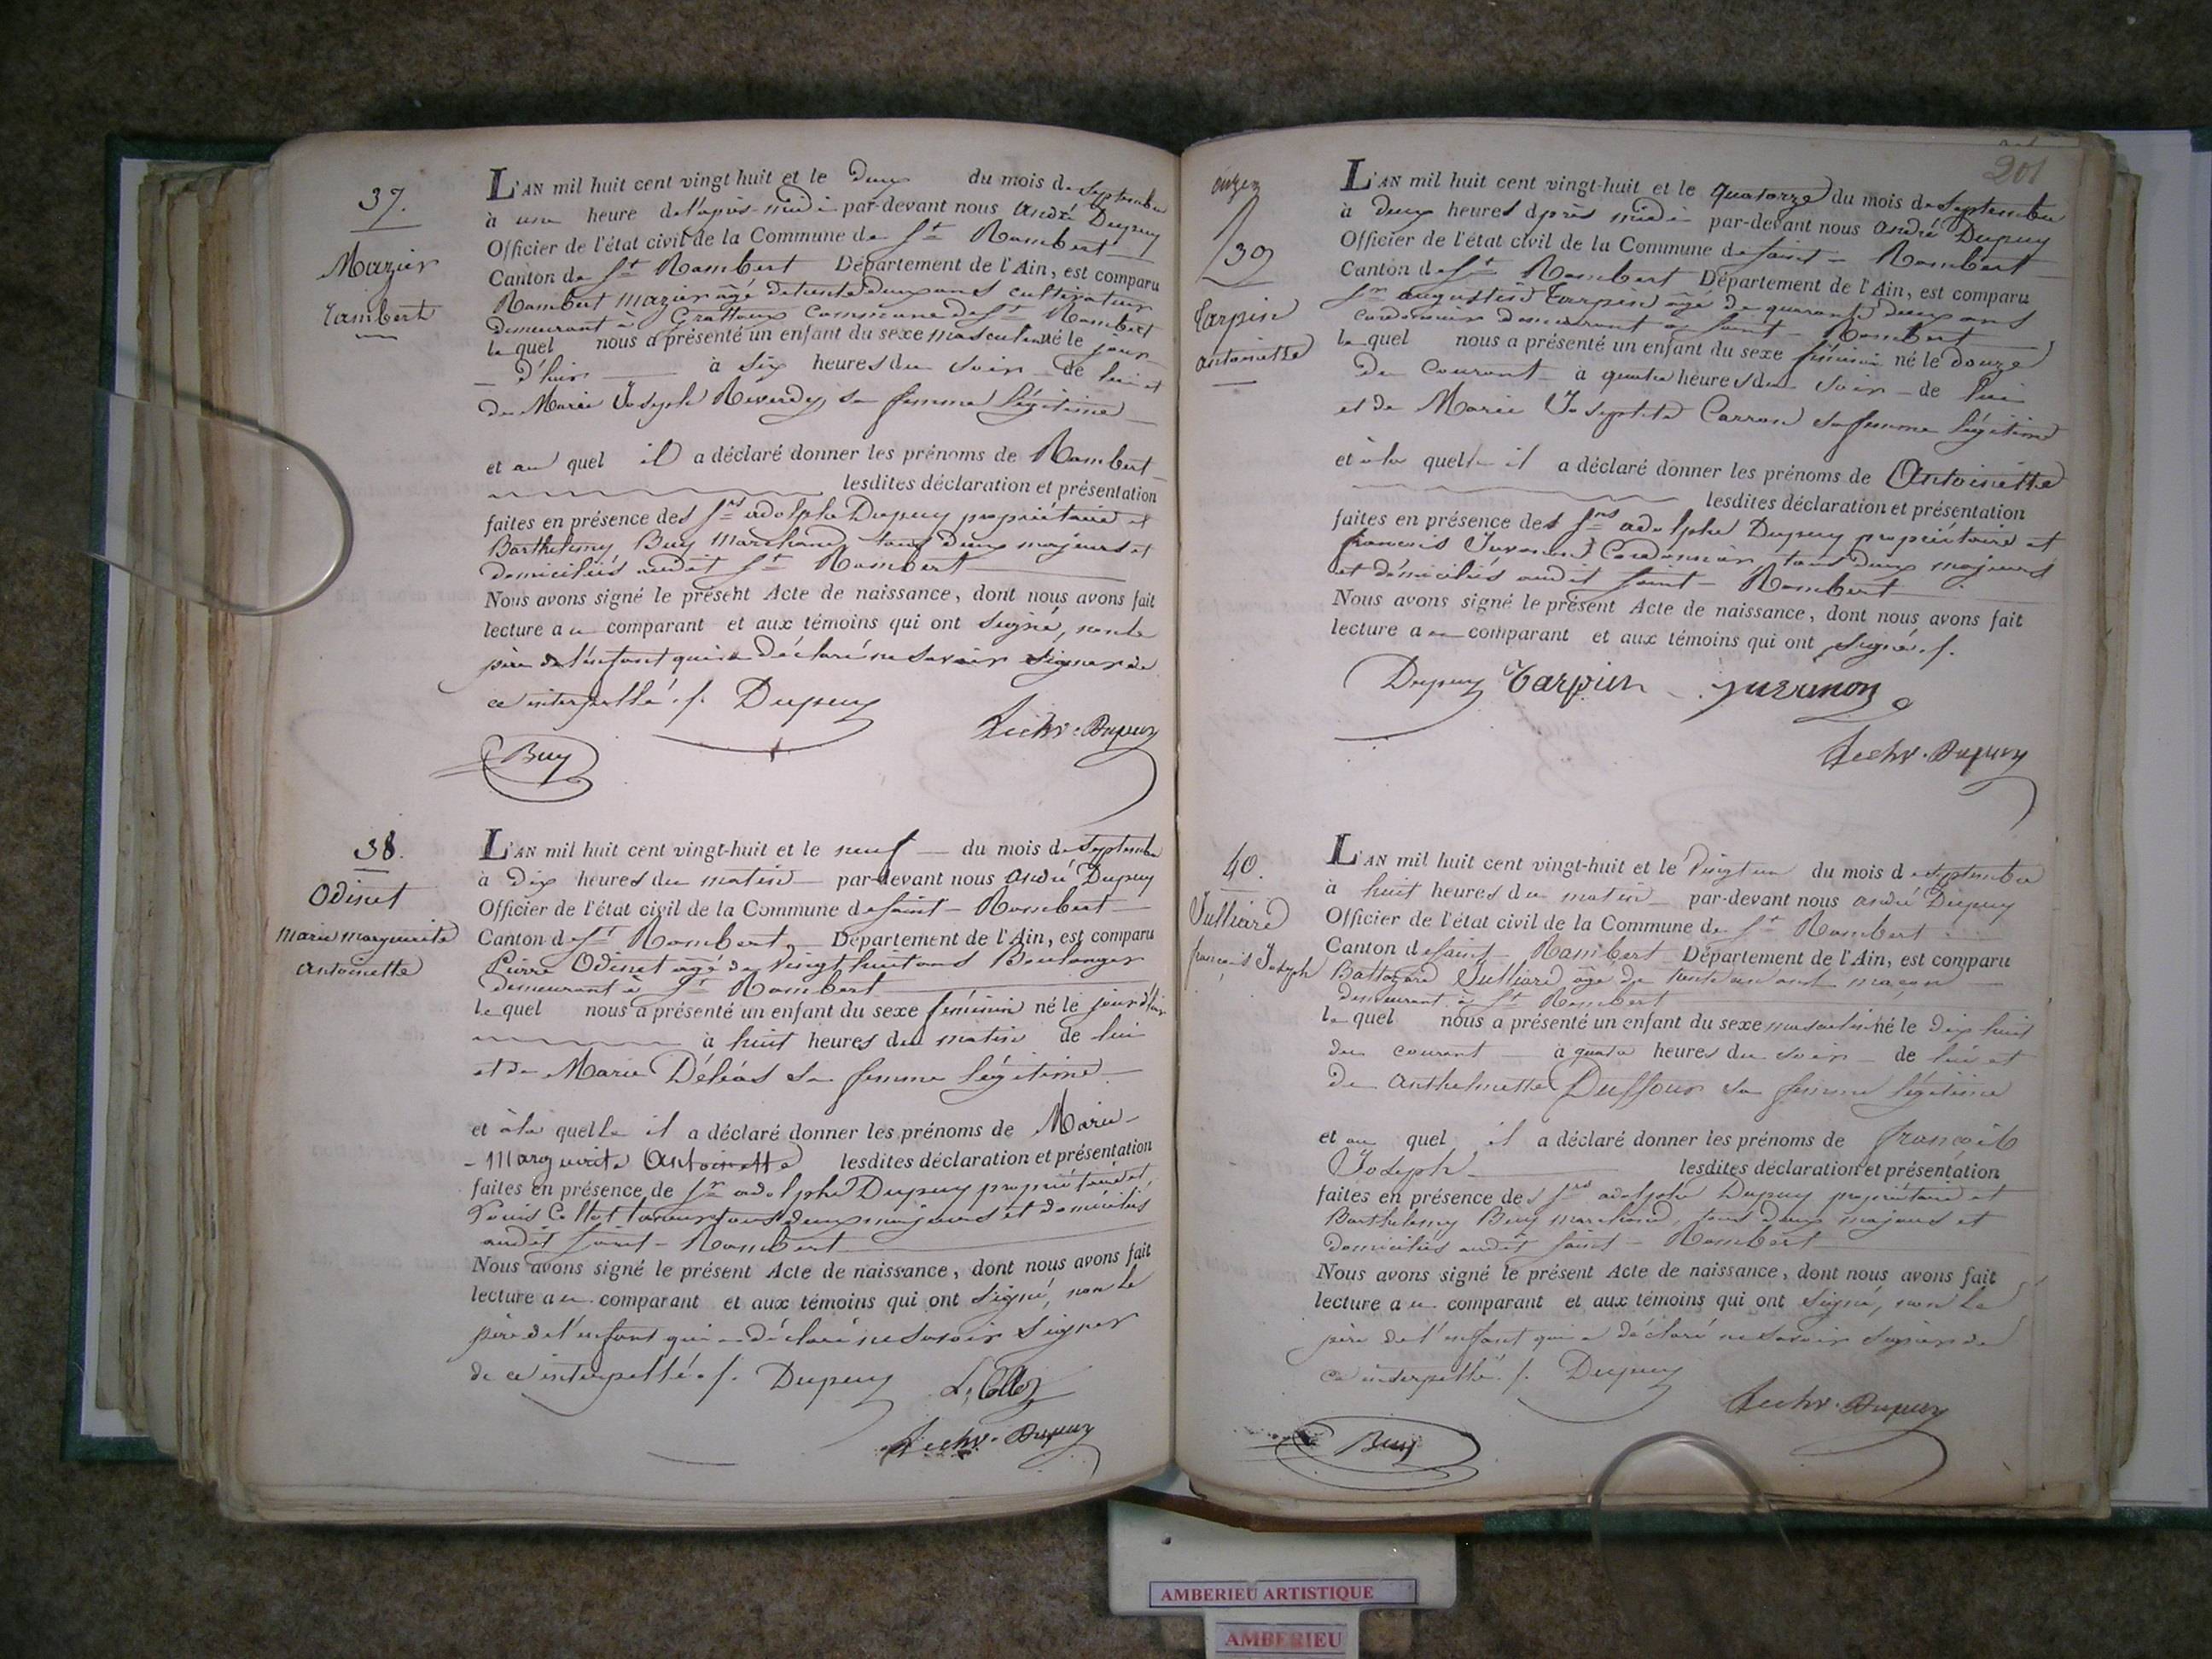 37.
Mazier
Rambert
L'AN mil huit cent vingt huit et le deux du mois de Septembre
à une heure de l'après-midi par-devant nous André Dupuy
Officier de l'état civil de la Commune de St Rambert
Canton de St Rambert Département de l'Ain, est comparu
Rambert Mazier âgé de trente deux ans cultivateur
demeurant à Grattoux Commune de St Rambert
lequel nous a présenté un enfant du sexe masculin né le jour
d'hier à six heures du soir de lui et
de Marie Joseph Reverdy sa femme légitime
et au quel il a déclaré donner les prénoms de Rambert
lesdites déclaration et présentation
faites en présence des Srs adolphe Dupuy propriétaire et
Barthelemy Buy Marchand, tous deux majeurs et
domiciliés audit St Rambert
Nous avons signé le présent Acte de naissance, dont nous avons fait
lecture au comparant et aux témoins qui ont signé, non le
père de l'enfant qui a déclaré ne savoir signer de
ce interpellé ./. Dupuy
Buy
Dupuy
38.
Odinet
Marie Marguerite
Antoinette
L'AN mil huit cent vingt-huit et le neuf du mois de Septembre
à dix heures du matin par-devant nous André Dupuy
Officier de l'état civil de la Commune de Saint-Rambert
Canton de St Rambert, Département de l'Ain, est comparu
Pierre Odinet âgé de vingt huit ans Boulanger
demeurant à St Rambert
lequel nous a présenté un enfant du sexe féminin né le jour d'hier
à huit heures du matin de lui
et de Marie sa femme légitime
et à la quelle il a déclaré donner les prénoms de Marie
-Marguerite Antoinette lesdites déclaration et présentation
faites en présence de Sr adolphe Dupuy propriétaire et
Louis tous deux majeurs et domiciliés
audit Saint-Rambert
Nous avons signé le présent Acte de naissance, dont nous avons fait
lecture au comparant et aux témoins qui ont signé, non le
père de l'enfant qui a déclaré ne savoir signer
de ce interpellé ./. Dupuy
Dupuy
201
39
Tarpin
Antoinette
L'AN mil huit cent vingt-huit et le quatorze du mois de Septembre
à deux heures après midi par-devant nous André Dupuy
Officier de l'état civil de la Commune de Saint-Rambert
Canton de St Rambert Département de l'Ain, est comparu
Sr augustin Tarpin âgé de quarante deux ans
cordonnier demeurant à Saint-Rambert
lequel nous a présenté un enfant du sexe féminin né le douze
du courant à quatre heures du soir de lui
et de Marie Josephte Carron sa femme légitime
et à la quelle il a déclaré donner les prénoms de Antoinette
lesdites déclaration et présentation
faites en présence des Srs adolphe Dupuy propriétaire et
françois Juvanon Cordonnier, tous deux majeurs
et domiciliés audit Saint-Rambert
Nous avons signé le présent Acte de naissance, dont nous avons fait
lecture au comparant et aux témoins qui ont signé ./.
Dupuy Tarpin
Dupuy
40.
Julliard
françois Joseph
L'AN mil huit cent vingt-huit et le vingt un du mois de Septembre
à huit heures du matin par-devant nous André Dupuy
Officier de l'état civil de la Commune de St Rambert
Canton de Saint-Rambert Département de l'Ain, est comparu
Julliard âgé de trente un ans maçon
demeurant à St Rambert
lequel nous a présenté un enfant du sexe masculin né le dix huit
du courant à quatre heures du soir de lui et
de Anthelmette Duffour sa femme légitime
et au quel il a déclaré donner les prénoms de françois
Joseph lesdites déclaration et présentation
faites en présence des Srs adolphe Dupuy propriétaire et
Barthelemy Buy marchand, tous deux majeurs et
domiciliés audit Saint-Rambert
Nous avons signé le présent Acte de naissance, dont nous avons fait
lecture au comparant et aux témoins qui ont signé, non le
père de l'enfant qui a déclaré ne savoir signer de
ce interpellé ./. Dupuy
Dupuy
Buy
AMBERIEU ARTISTIQUE
AMBERIEU